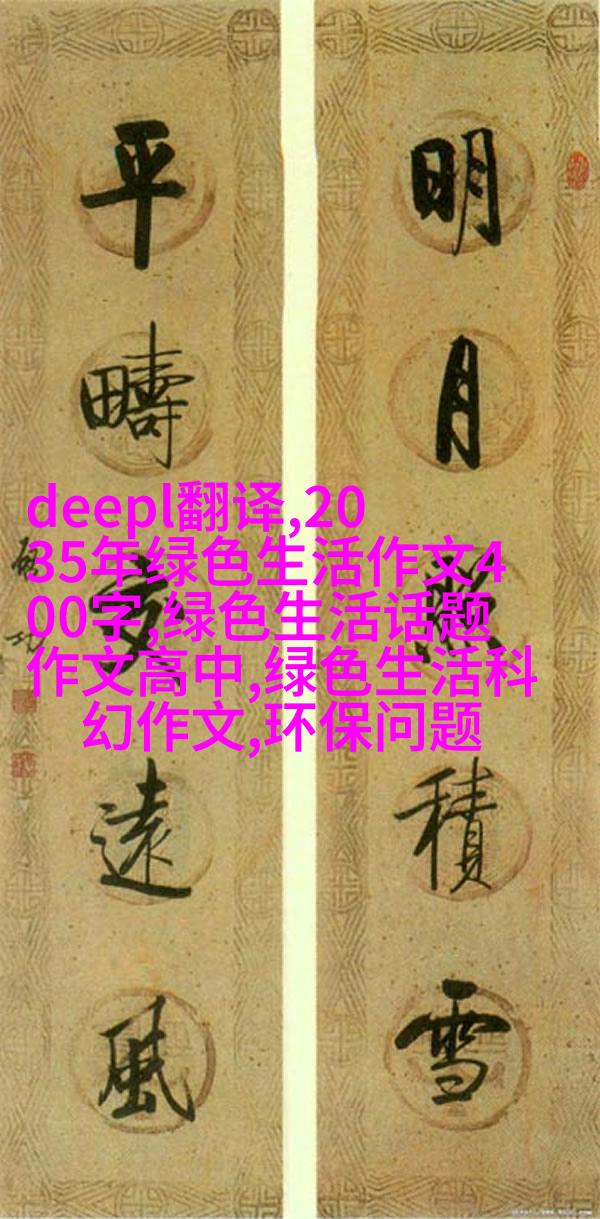 明月積雪
平疇遠風
deepl翻译,20
35年绿色生活作文4
00字,绿色生活话题
作文高中,绿色生活科
幻作文,环保问题